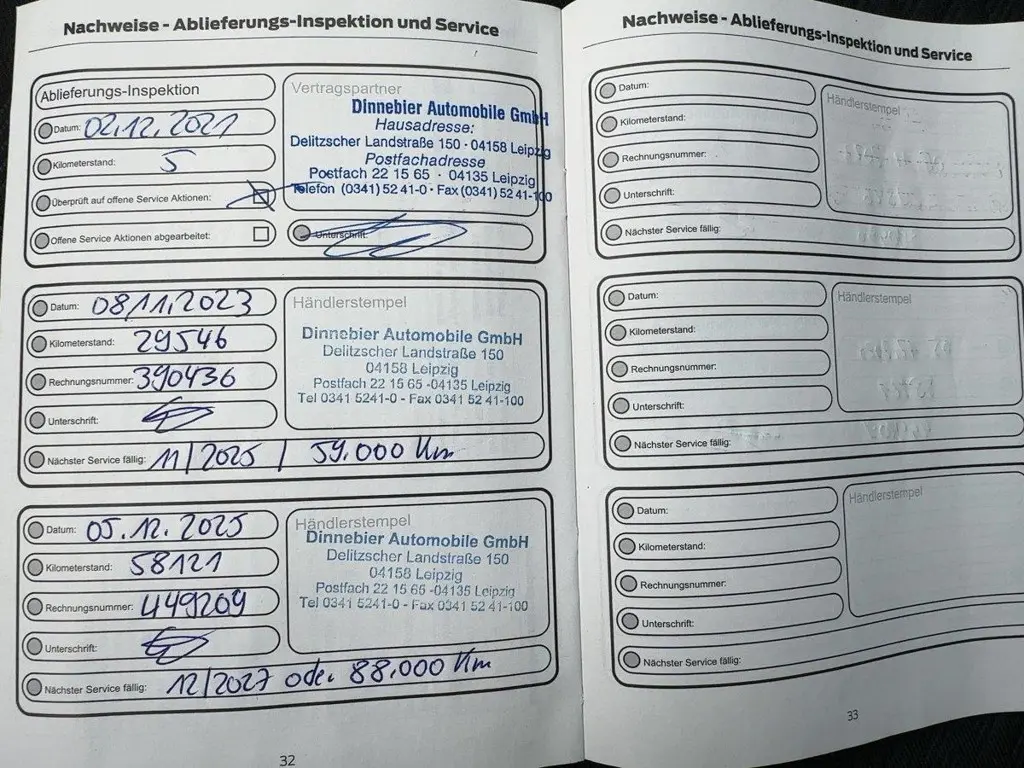 Nachweise - Ablieferungs-Inspektion und Service
Ablieferungs-Inspektion
Datum: 02.12.2021
Kilometerstand: 5
Überprüft auf offene Service Aktionen:
Offene Service Aktionen abgearbeitet:
Vertragspartner
Dinnebier Automobile GmbH
Hausadresse:
Delitzscher Landstraße 150 · 04158 Leipzig
Postfachadresse
Postfach 22 15 65 · 04135 Leipzig
Telefon (0341) 52 41-0 · Fax (0341) 52 41-100
Unterschrift:
Datum: 08/11.2023
Kilometerstand: 29546
Rechnungsnummer: 390436
Unterschrift:
Nächster Service fällig: 11/2025 / 59.000 Km
Händlerstempel
Dinnebier Automobile GmbH
Delitzscher Landstraße 150
04158 Leipzig
Postfach 22 15 65 -04135 Leipzig
Tel 0341 5241-0 - Fax 0341 52 41-100
Datum: 05.12.2025
Kilometerstand: 58121
Rechnungsnummer: 449209
Unterschrift:
Nächster Service fällig: 12/2027 oder 88.000 Km
Händlerstempel
Dinnebier Automobile GmbH
Delitzscher Landstraße 150
04158 Leipzig
Postfach 22 15 65 -04135 Leipzig
Tel 0341 5241-0 - Fax 0341 52 41-100
32
Nachweise - Ablieferungs-Inspektion und Service
Datum:
Kilometerstand:
Rechnungsnummer:
Unterschrift:
Nächster Service fällig:
Händlerstempel
Datum:
Kilometerstand:
Rechnungsnummer:
Unterschrift:
Nächster Service fällig:
Händlerstempel
Datum:
Kilometerstand:
Rechnungsnummer:
Unterschrift:
Nächster Service fällig:
Händlerstempel
33